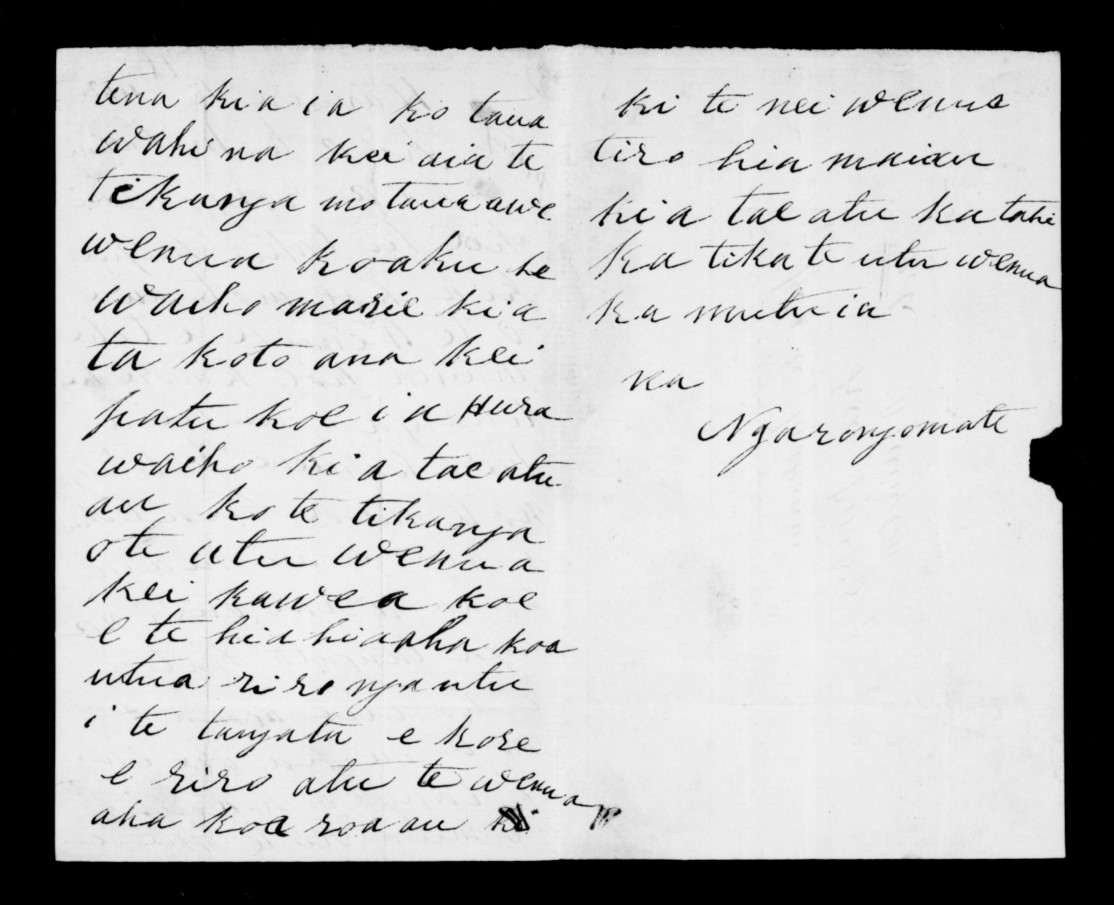 tena kia ia ko taua
wahi na kei aia te
tikanga mo taua awe
wenua koaku he
waiho marie kia
ta koto ana kei
patu koe i a Hura
waiho kia tae atu
au ko te tikanga
ote utu wenua
kei kawea koe
e te hia hia aha koa
utua riro nga utu
i te tangata e kore
e riro atu te wenua
aha koa roa au
ki te nei wenua
tiro hia mai au
kia tae atu ka tahi
ka tika te utu wenua
ka mutu ia
na
Ngarongomate